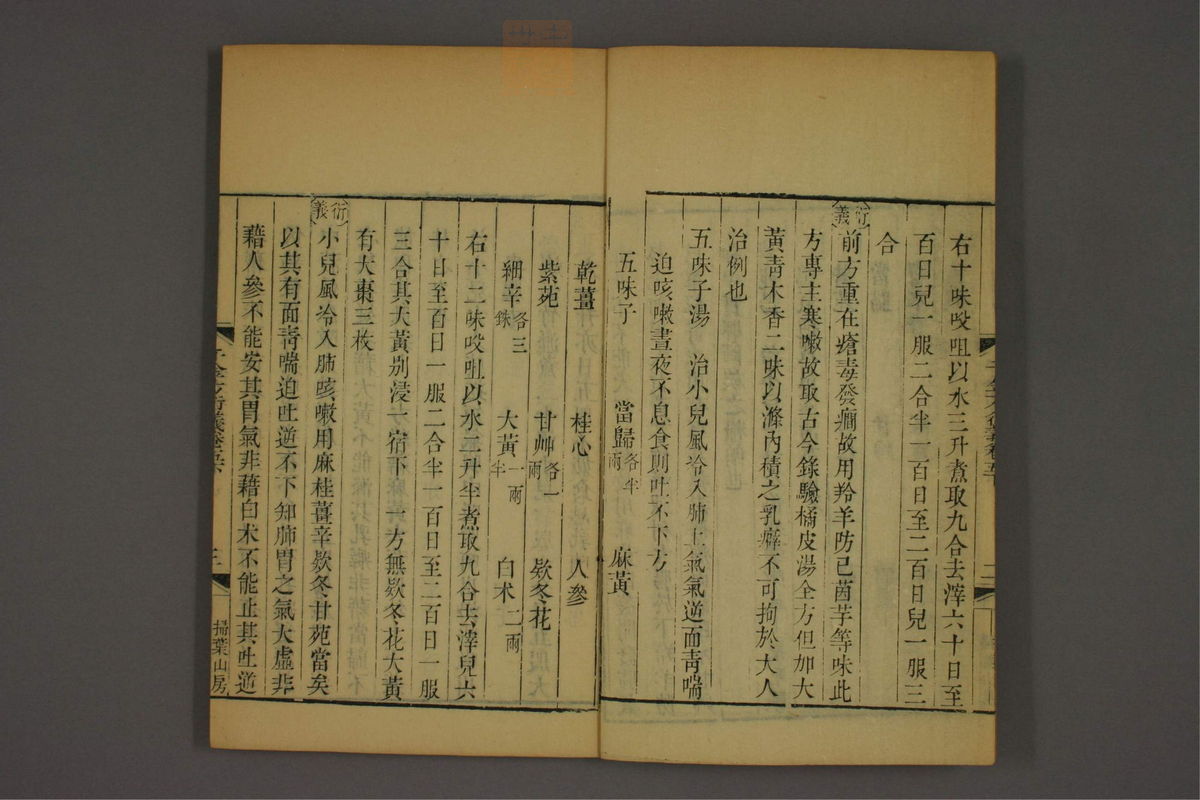 右十味㕮咀以水三升煮取九合去滓六十日至
百日兒一服二合半一百日至二百日兒一服三
合
衍義
前方重在瘡毒發癇故用羚羊防己茵芋等味此
方專主寒嗽故取古今錄驗橘皮湯全方但加大
黃青木香二味以滌內積之乳癖不可拘於大人
治例也
五味子湯 治小兒風冷入肺上氣氣逆而靑喘
迫咳嗽晝夜不息食則吐不下方
五味子 當歸各半兩 麻黃
乾薑 桂心 人參
紫苑 甘艸各一兩 欵冬花
細辛各三銖 大黃一兩半 白朮二兩
右十二味㕮咀以水二升半煮取九合去滓兒六
十日至百日一服二合半一百日至二百日一服
三合其大黃別浸一宿下 一方無欵冬花大黃
有大棗三枚
衍義
小兒風冷入肺咳嗽用麻桂薑辛欵冬甘苑當矣
以其有面靑喘迫吐逆不下知肺胃之氣大虛非
藉人參不能安其胃氣非藉白朮不能止其吐逆
三
掃葉山房